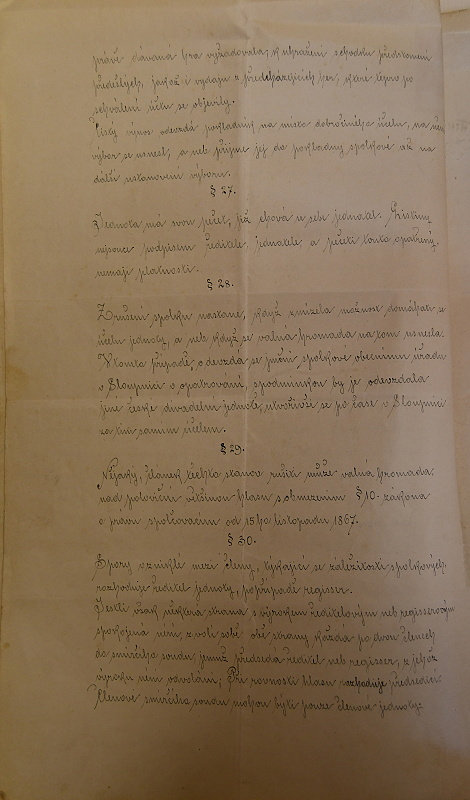 právě dávaná hra vyžadovala, k uhražení schodku představení
předešlých, jakož i vydaju z předcházejících her, které teprv po
schválení účtu se objevily.
Čistý výnos odevzdá pokladník na místo dobročinného účelu, na něm
výbor se usnesl; a neb přijme jej do pokladny spolkové až na
další ustanovení výboru.
§ 27.
Jednota má svou pečeť, již chová u sebe jednatel. Listiny,
nejsouce podpisem ředitele, jednatele, a pečetí touto opatřeny,
nemají platnosti.
§ 28.
Zrušení spolku nastane, když zmizela možnost domáhati se
účelu jednoty, a neb když se valná hromada na tom usnesla.
V tomto případě, odevzdá se jmění spolkové obecnímu úřadu
v Sloupnici v opatrování, s podmínkou by je odevzdala
jiné české divadelní jednotě, utvořivší se po čase v Sloupnici
za tím samým účelem.
§ 29.
Nějaký, článek těchto stanov rušiti může valná hromada,
nad poloviční většinou hlasů s obmezením § 10. zákona
o právu spolčovacím od 15ho listopadu 1867.
§ 30.
Spory vzniklé mezi členy, týkající se záležitostí spolkových,
rozhoduje ředitel jednoty, popřípadě regisser.
Jestli však některá strana s výrokem ředitelovým neb regisserovým
spokojena není, zvolí sobě obě strany každá po dvou členech
do smírčího soudu, jemuž předsedá ředitel neb regisser, z jehož
výroku není odvolání; Při rovnosti hlasů rozhoduje předsedící
Členové smírčího soudu mohou býti pouze členové jednoty.